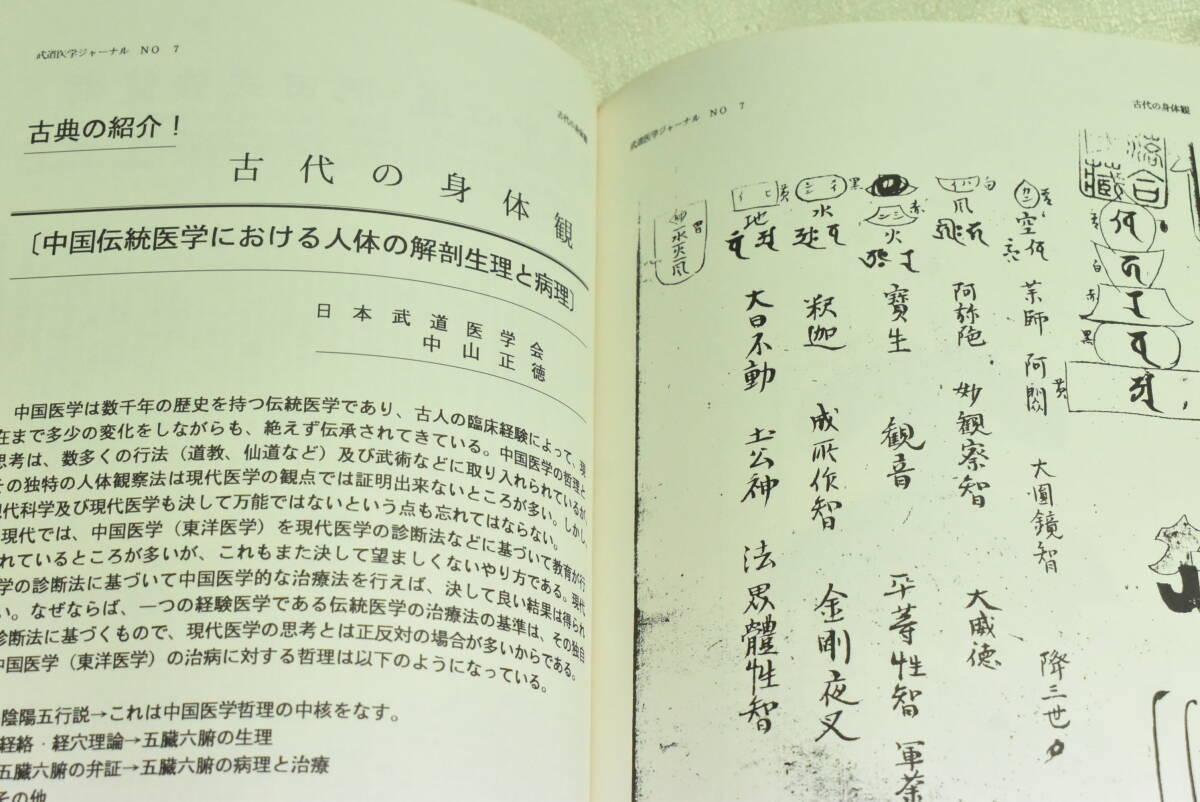 武道医学ジャーナル NO 7
古代の身体観
古典の紹介！
古代の身体観
〔中国伝統医学における人体の解剖生理と病理〕
日本武道医学会
中山正徳
中国医学は数千年の歴史を持つ伝統医学であり、古人の臨床経験によって、現
在まで多少の変化をしながらも、絶えず伝承されてきている。中国医学の哲理と
思考は、数多くの行法（道教、仙道など）及び武術などに取り入れられているが、
その独特の人体観察法は現代医学の観点では証明出来ないところが多い。しかし、
現代科学及び現代医学も決して万能ではないという点も忘れてはならない。
現代では、中国医学（東洋医学）を現代医学の診断法などに基づいて教育が行
れているところが多いが、これもまた決して望ましくないやり方である。現代
学の診断法に基づいて中国医学的な治療法を行えば、決して良い結果は得られ
い。なぜならば、一つの経験医学である伝統医学の治療法の基準は、その独自
診断法に基づくもので、現代医学の思考とは正反対の場合が多いからである。
中国医学（東洋医学）の治病に対する哲理は以下のようになっている。
陰陽五行説→これは中国医学哲理の中核をなす。
経絡・経穴理論→五臓六腑の生理
五臓六腑の弁証→五臓六腑の病理と治療
その他
武道医学ジャーナル NO 7
古代の身体観
空 薬師 阿閦 大圓鏡智 降三世
白 風 阿弥陀 妙観察智 大威徳
赤 火 寶生 観音 平等性智 軍荼
黒 水 釈迦 成所作智 金剛夜叉
黄 地 大日不動 土公神 法界體性智
白
赤
黒
黄